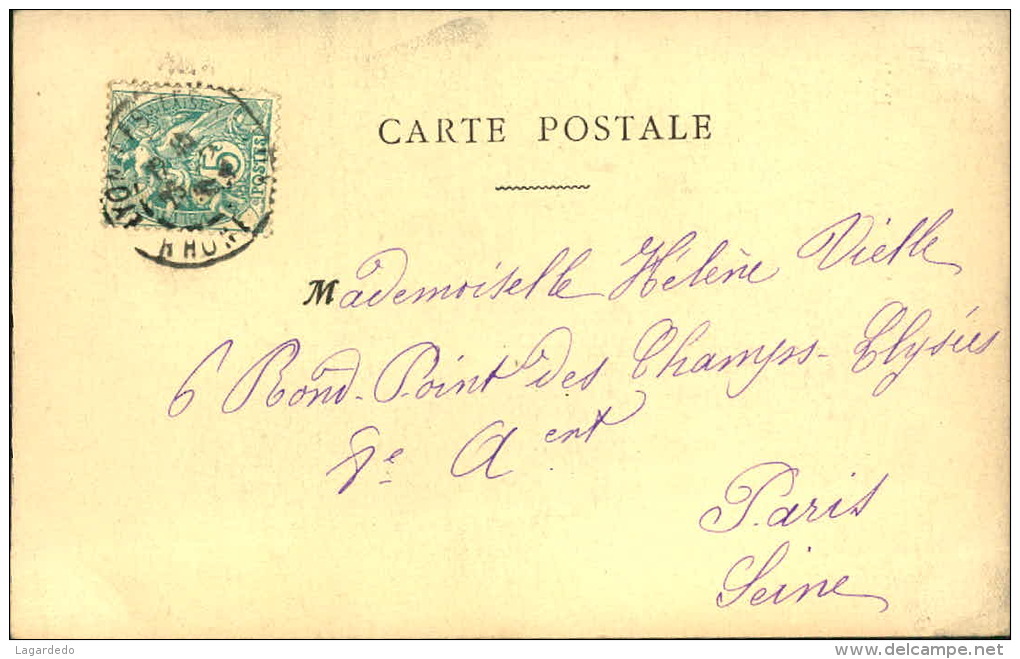 CARTE POSTALE
5
POSTES
RHONE
Mademoiselle Hélène Vielle
6 Rond-Point des Champs-Elysées
8e Aent
Paris
Seine
Lagardedo
delcampe.net